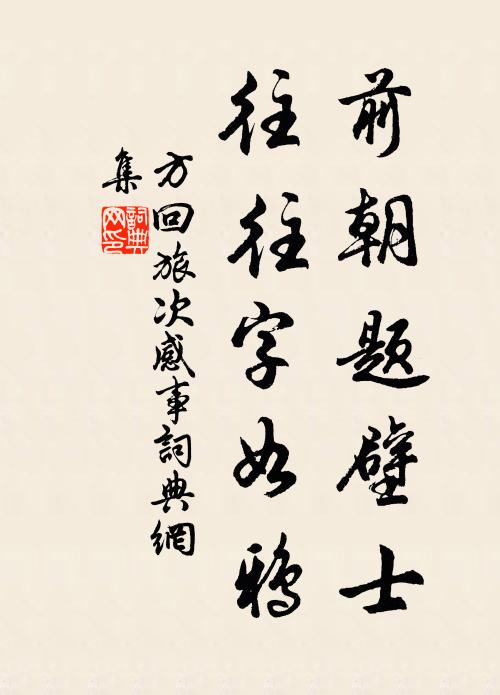 前朝题壁士
往往字如鸦
方回旅次感事詞典網
集
詞典网印